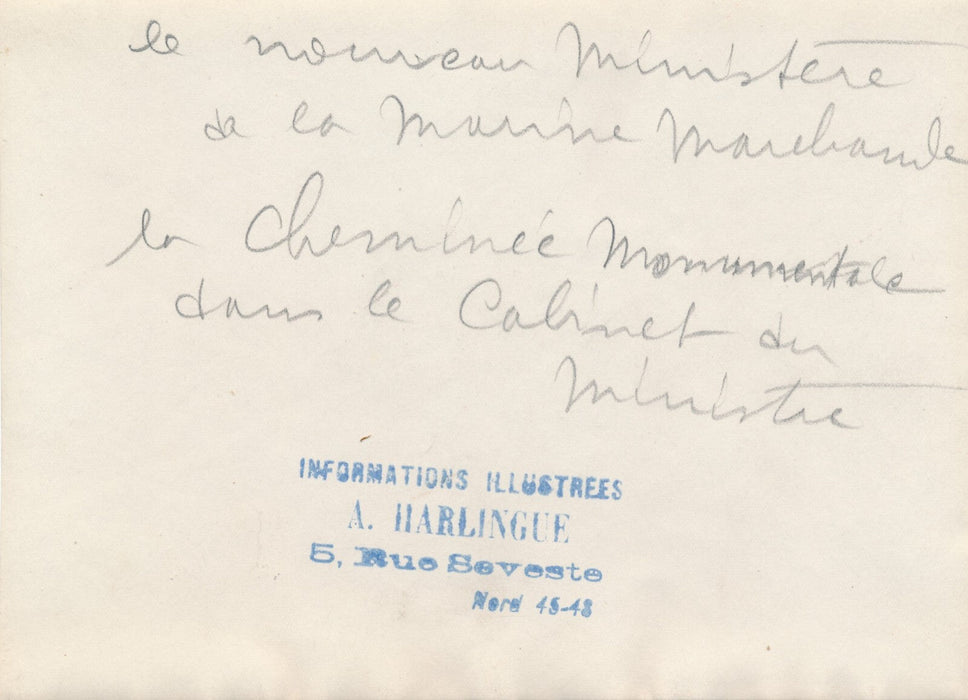 le nouveau Ministère
de la Marine Marchande
la Cheminée Monumentale
dans le Cabinet du
Ministre
INFORMATIONS ILLUSTREES
A. HARLINGUE
5, Rue Seveste
Nord 45-48